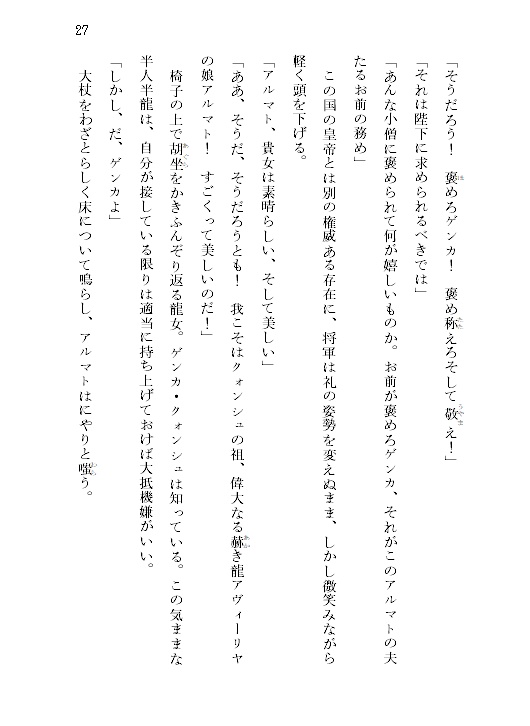 27
「そうだろう！　褒めろゲンカ！　褒め称えろそして敬え！」
「それは陛下に求められるべきでは」
「あんな小僧に褒められて何が嬉しいものか。お前が褒めろゲンカ、それがこのアルマトの夫
たるお前の務め」
　この国の皇帝とは別の権威ある存在に、将軍は礼の姿勢を変えぬまま、しかし微笑みながら
軽く頭を下げる。
「アルマト、貴女は素晴らしい、そして美しい」
「ああ、そうだ、そうだろうとも！　我こそはクォンシュの祖、偉大なる赫き龍アヴィーリヤ
の娘アルマト！　すごくって美しいのだ！」
　椅子の上で胡坐をかきふんぞり返る龍女。ゲンカ・クォンシュは知っている。この気ままな
半人半龍は、自分が接している限りは適当に持ち上げておけば大抵機嫌がいい。
「しかし、だ、ゲンカよ」
　大杖をわざとらしく床について鳴らし、アルマトはにやりと嗤う。